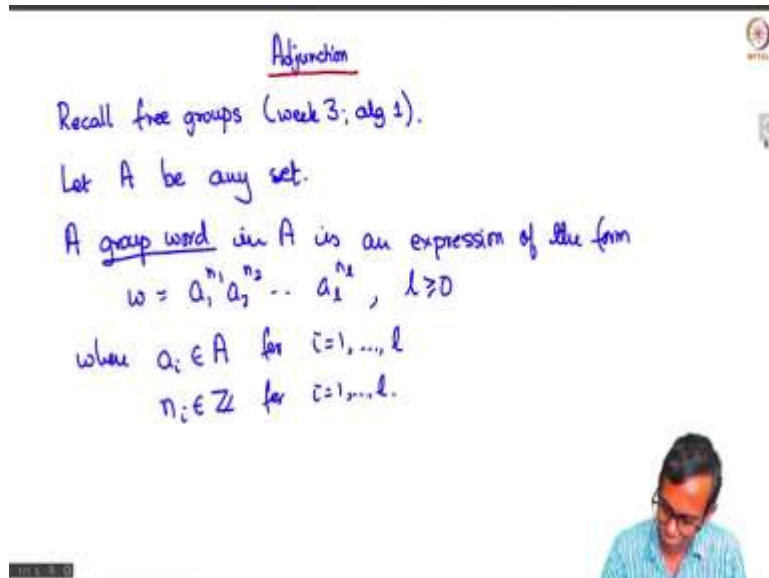 Adjunction
Recall free groups (week 3; alg 1).
Let A be any set.
A group word in A is an expression of the form
w = a₁^{n₁} a₂^{n₂} .. a_l^{n_l}, l ≥ 0
where a_i ∈ A for i=1, ..., l
n_i ∈ ℤ for i=1, ... l.